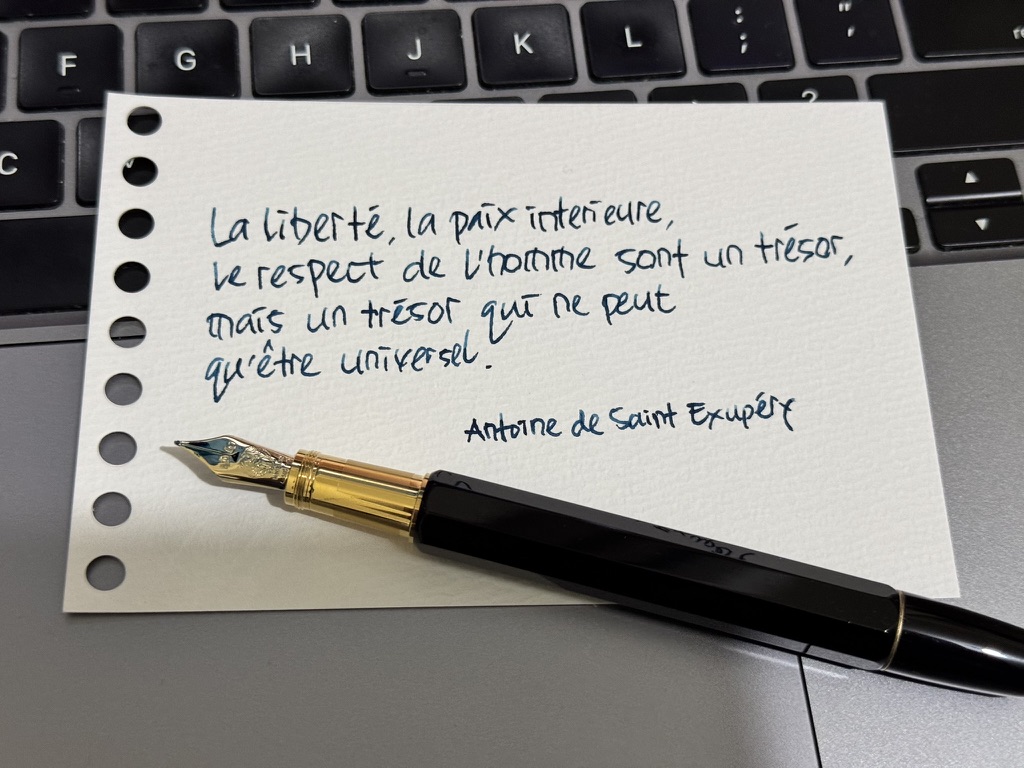 F G H J K L : ; " '
C ?
La liberté, la paix interieure,
le respect de l'homme sont un trésor,
mais un trésor qui ne peut
qu'être universel.
Antoine de Saint Exupéry